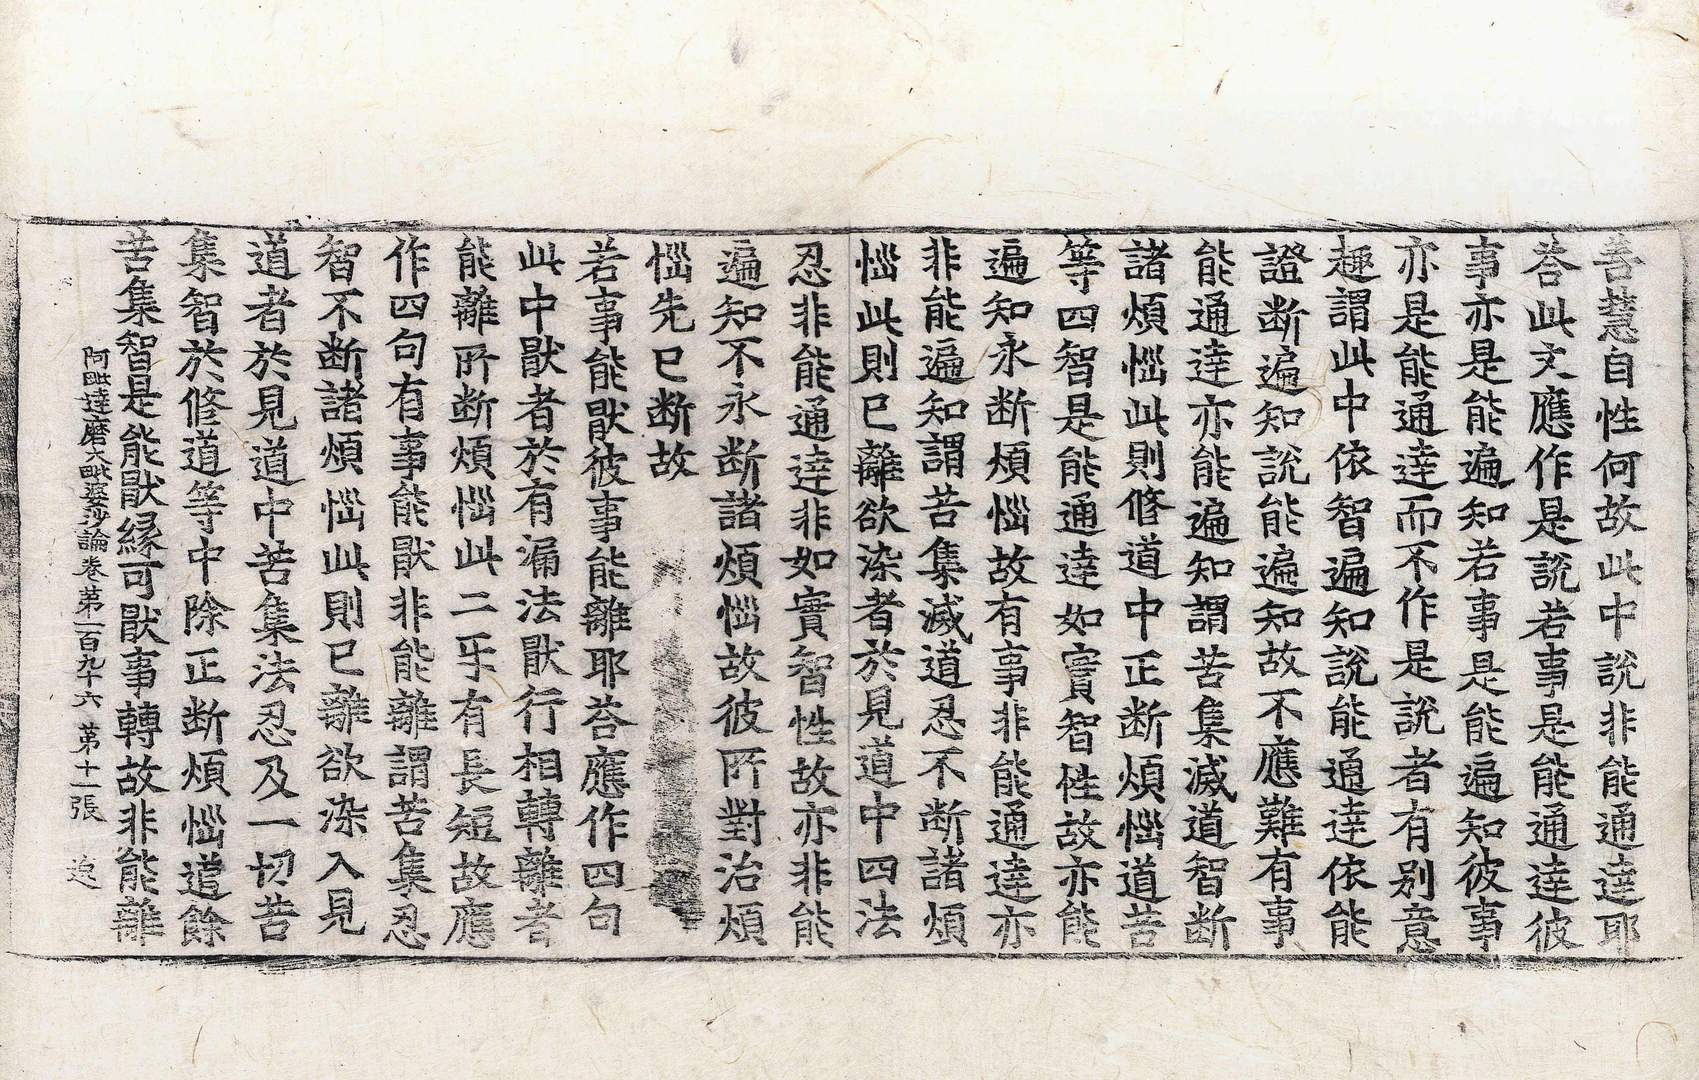 善慧自性何故此中說非能通達耶
荅此文應作是說若事是能通達彼
事亦是能遍知若事是能遍知彼事
亦是能通達而不作是說者有別意
趣謂此中依智遍知說能通達依能
證斷遍知說能遍知故不應難有事
能通達亦能遍知謂苦集滅道智斷
諸煩惱此則修道中正斷煩惱道苦
等四智是能通達如實智性故亦能
遍知永斷煩惱故有事非能通達亦
非能遍知謂苦集滅道忍不斷諸煩
惱此則已離欲染者於見道中四法
忍非能通達非如實智性故亦非能
遍知不永斷諸煩惱故彼所對治煩
惱先已斷故
若事能猒彼事能離耶荅應作四句
此中猒者於有漏法猒行相轉離者
能離所斷煩惱此二乐有長短故應
作四句有事能猒非能離謂苦集忍
智不斷諸煩惱此則已離欲染入見
道者於見道中苦集法忍及一切苦
集智於修道等中除正斷煩惱道餘
苦集智是能猒緣可猒事轉故非能離
阿毗達磨大毗婆沙論卷第一百九十六 第十一張